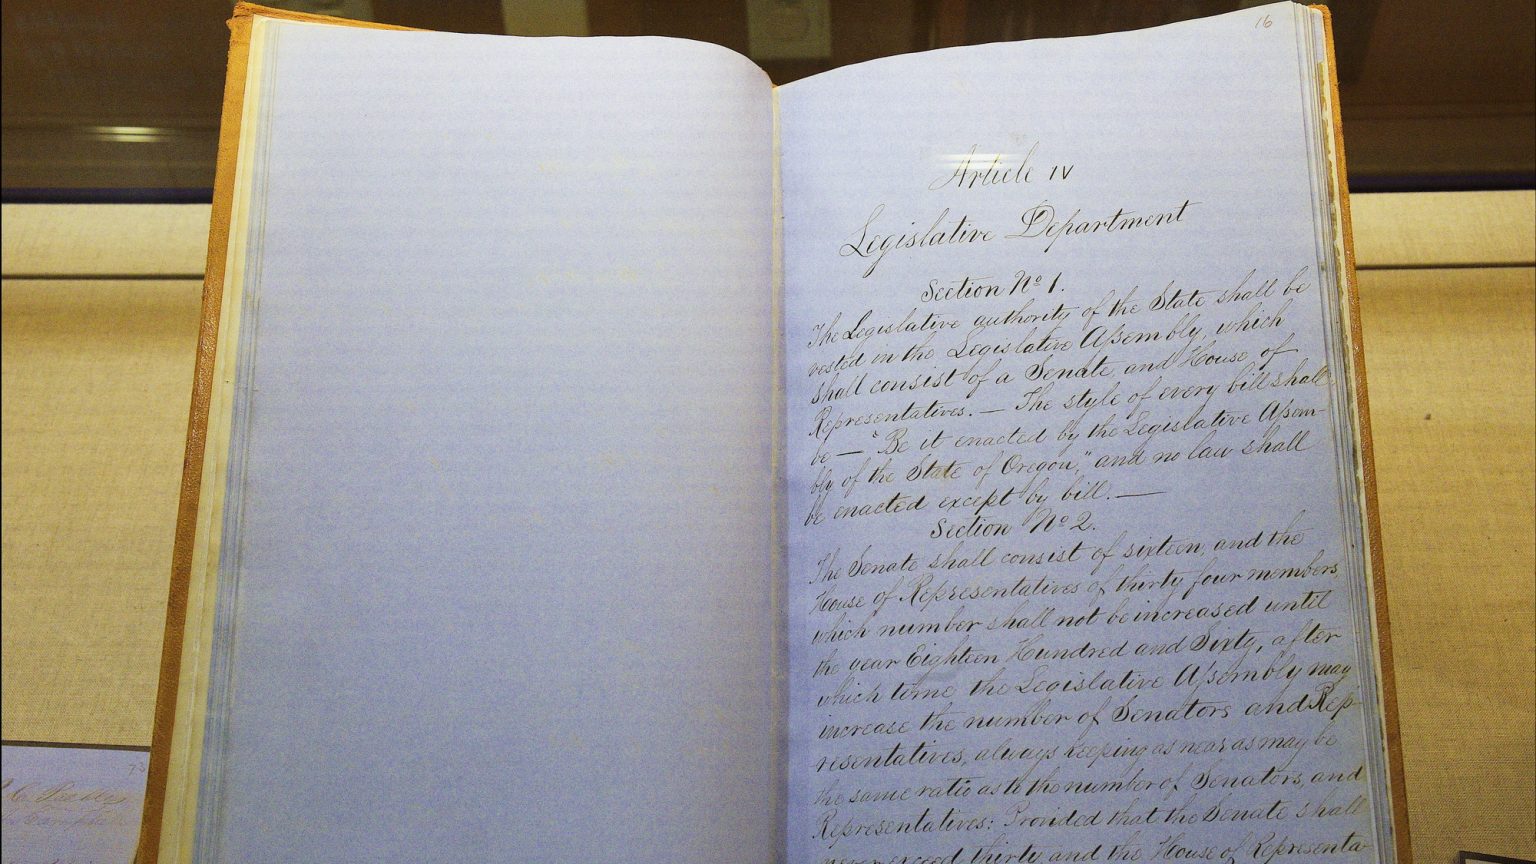 16
Article IV
Legislative Department
Section Nº 1.
The Legislative authority of the State shall be
vested in the Legislative Assembly, which
shall consist of a Senate and House of
Representatives. — The style of every bill shall
be — "Be it enacted by the Legislative Assem-
bly of the State of Oregon," and no law shall
be enacted except by bill. —
Section Nº 2.
The Senate shall consist of sixteen, and the
House of Representatives of thirty four members,
which number shall not be increased until
the year Eighteen Hundred and Sixty, after
which time the Legislative Assembly may
increase the number of Senators and Rep-
resentatives, always keeping as near as may be
the same ratio as to the number of Senators, and
Representatives: Provided that the Senate shall
never exceed thirty and the House of Representa-
73